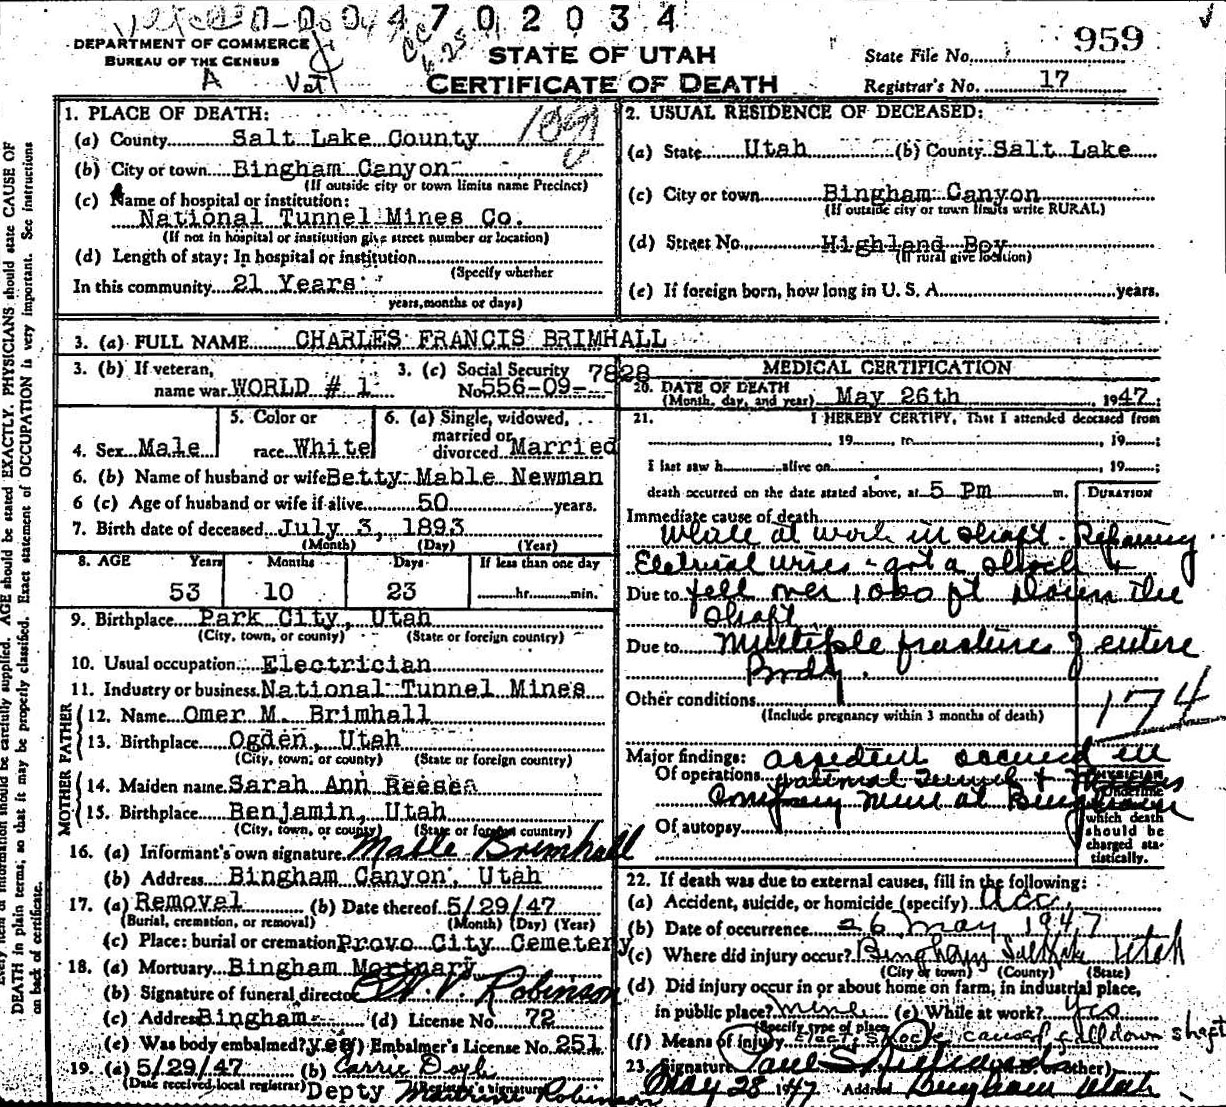 0004702034
DEPARTMENT OF COMMERCE
BUREAU OF THE CENSUS
A Vet
STATE OF UTAH
CERTIFICATE OF DEATH
State File No. 959
Registrar's No. 17
1. PLACE OF DEATH:
(a) County Salt Lake County
(b) City or town Bingham Canyon
(If outside city or town limits name Precinct)
(c) Name of hospital or institution:
National Tunnel Mines Co.
(If not in hospital or institution give street number or location)
(d) Length of stay: In hospital or institution
(Specify whether
In this community 21 Years
years, months or days)
2. USUAL RESIDENCE OF DECEASED:
(a) State Utah (b) County Salt Lake
(c) City or town Bingham Canyon
(If outside city or town limits write RURAL)
(d) Street No. Highland Boy
(If rural give location)
(e) If foreign born, how long in U. S. A. years.
3. (a) FULL NAME CHARLES FRANCIS BRIMHALL
3. (b) If veteran, name war WORLD # 1
3. (c) Social Security No. 556-09-7828
4. Sex Male
5. Color or race White
6. (a) Single, widowed, married or divorced Married
6. (b) Name of husband or wife Betty Mable Newman
6 (c) Age of husband or wife if alive 50 years.
7. Birth date of deceased July 3, 1893
(Month) (Day) (Year)
8. AGE Years Months Days If less than one day
53 10 23 hr. min.
9. Birthplace Park City, Utah
(City, town, or county) (State or foreign country)
10. Usual occupation Electrician
11. Industry or business National Tunnel Mines
FATHER
12. Name Omer M. Brimhall
13. Birthplace Ogden, Utah
(City, town, or county) (State or foreign country)
MOTHER
14. Maiden name Sarah Ann Reesea
15. Birthplace Benjamin, Utah
(City, town, or county) (State or foreign country)
16. (a) Informant's own signature Mable Brimhall
(b) Address Bingham Canyon, Utah
17. (a) Removal (b) Date thereof 5/29/47
(Burial, cremation, or removal) (Month) (Day) (Year)
(c) Place: burial or cremation Provo City Cemetery
18. (a) Mortuary Bingham Mortuary
(b) Signature of funeral director W. V. Robinson
(c) Address Bingham (d) License No. 72
(e) Was body embalmed? yes (f) Embalmer's License No. 251
19. (a) 5/29/47 (b) Carrie Doyle
(Date received local registrar) (Registrar's signature)
Depty Robinson
MEDICAL CERTIFICATION
20. DATE OF DEATH
(Month, day, and year) May 26th 1947
21. I HEREBY CERTIFY, That I attended deceased from
, 19 , to , 19 ;
I last saw h alive on , 19 ;
death occurred on the date stated above, at 5 Pm m.
DURATION
Immediate cause of death
While at work in shaft - Repairing
Electrical wires - got a shock &
Due to fell over 1000 ft down the
shaft.
Due to Multiple fracture of entire
Body.
174
Other conditions
(Include pregnancy within 3 months of death)
Major findings: accident occured in
Of operations National Tunnel & Mines
Company Mine at Bingham
Of autopsy
PHYSICIAN
Underline
which death
should be
charged sta-
tistically.
22. If death was due to external causes, fill in the following:
(a) Accident, suicide, or homicide (specify) Acc.
(b) Date of occurrence 26 May 1947
(c) Where did injury occur? Bingham Salt Lake Utah
(City or town) (County) (State)
(d) Did injury occur in or about home on farm, in industrial place,
in public place? mine (e) While at work? Yes
(Specify type of place)
(f) Means of injury Elect. Shock caused fall down shaft
23. Signature Paul S. (other)
May 28 1947 Address Bingham Utah
DEATH in plain terms, so that it may be properly classified. Exact statement of OCCUPATION is very important. See instructions
on back of certificate.
information should be carefully supplied. AGE should be stated EXACTLY. PHYSICIANS should state CAUSE OF